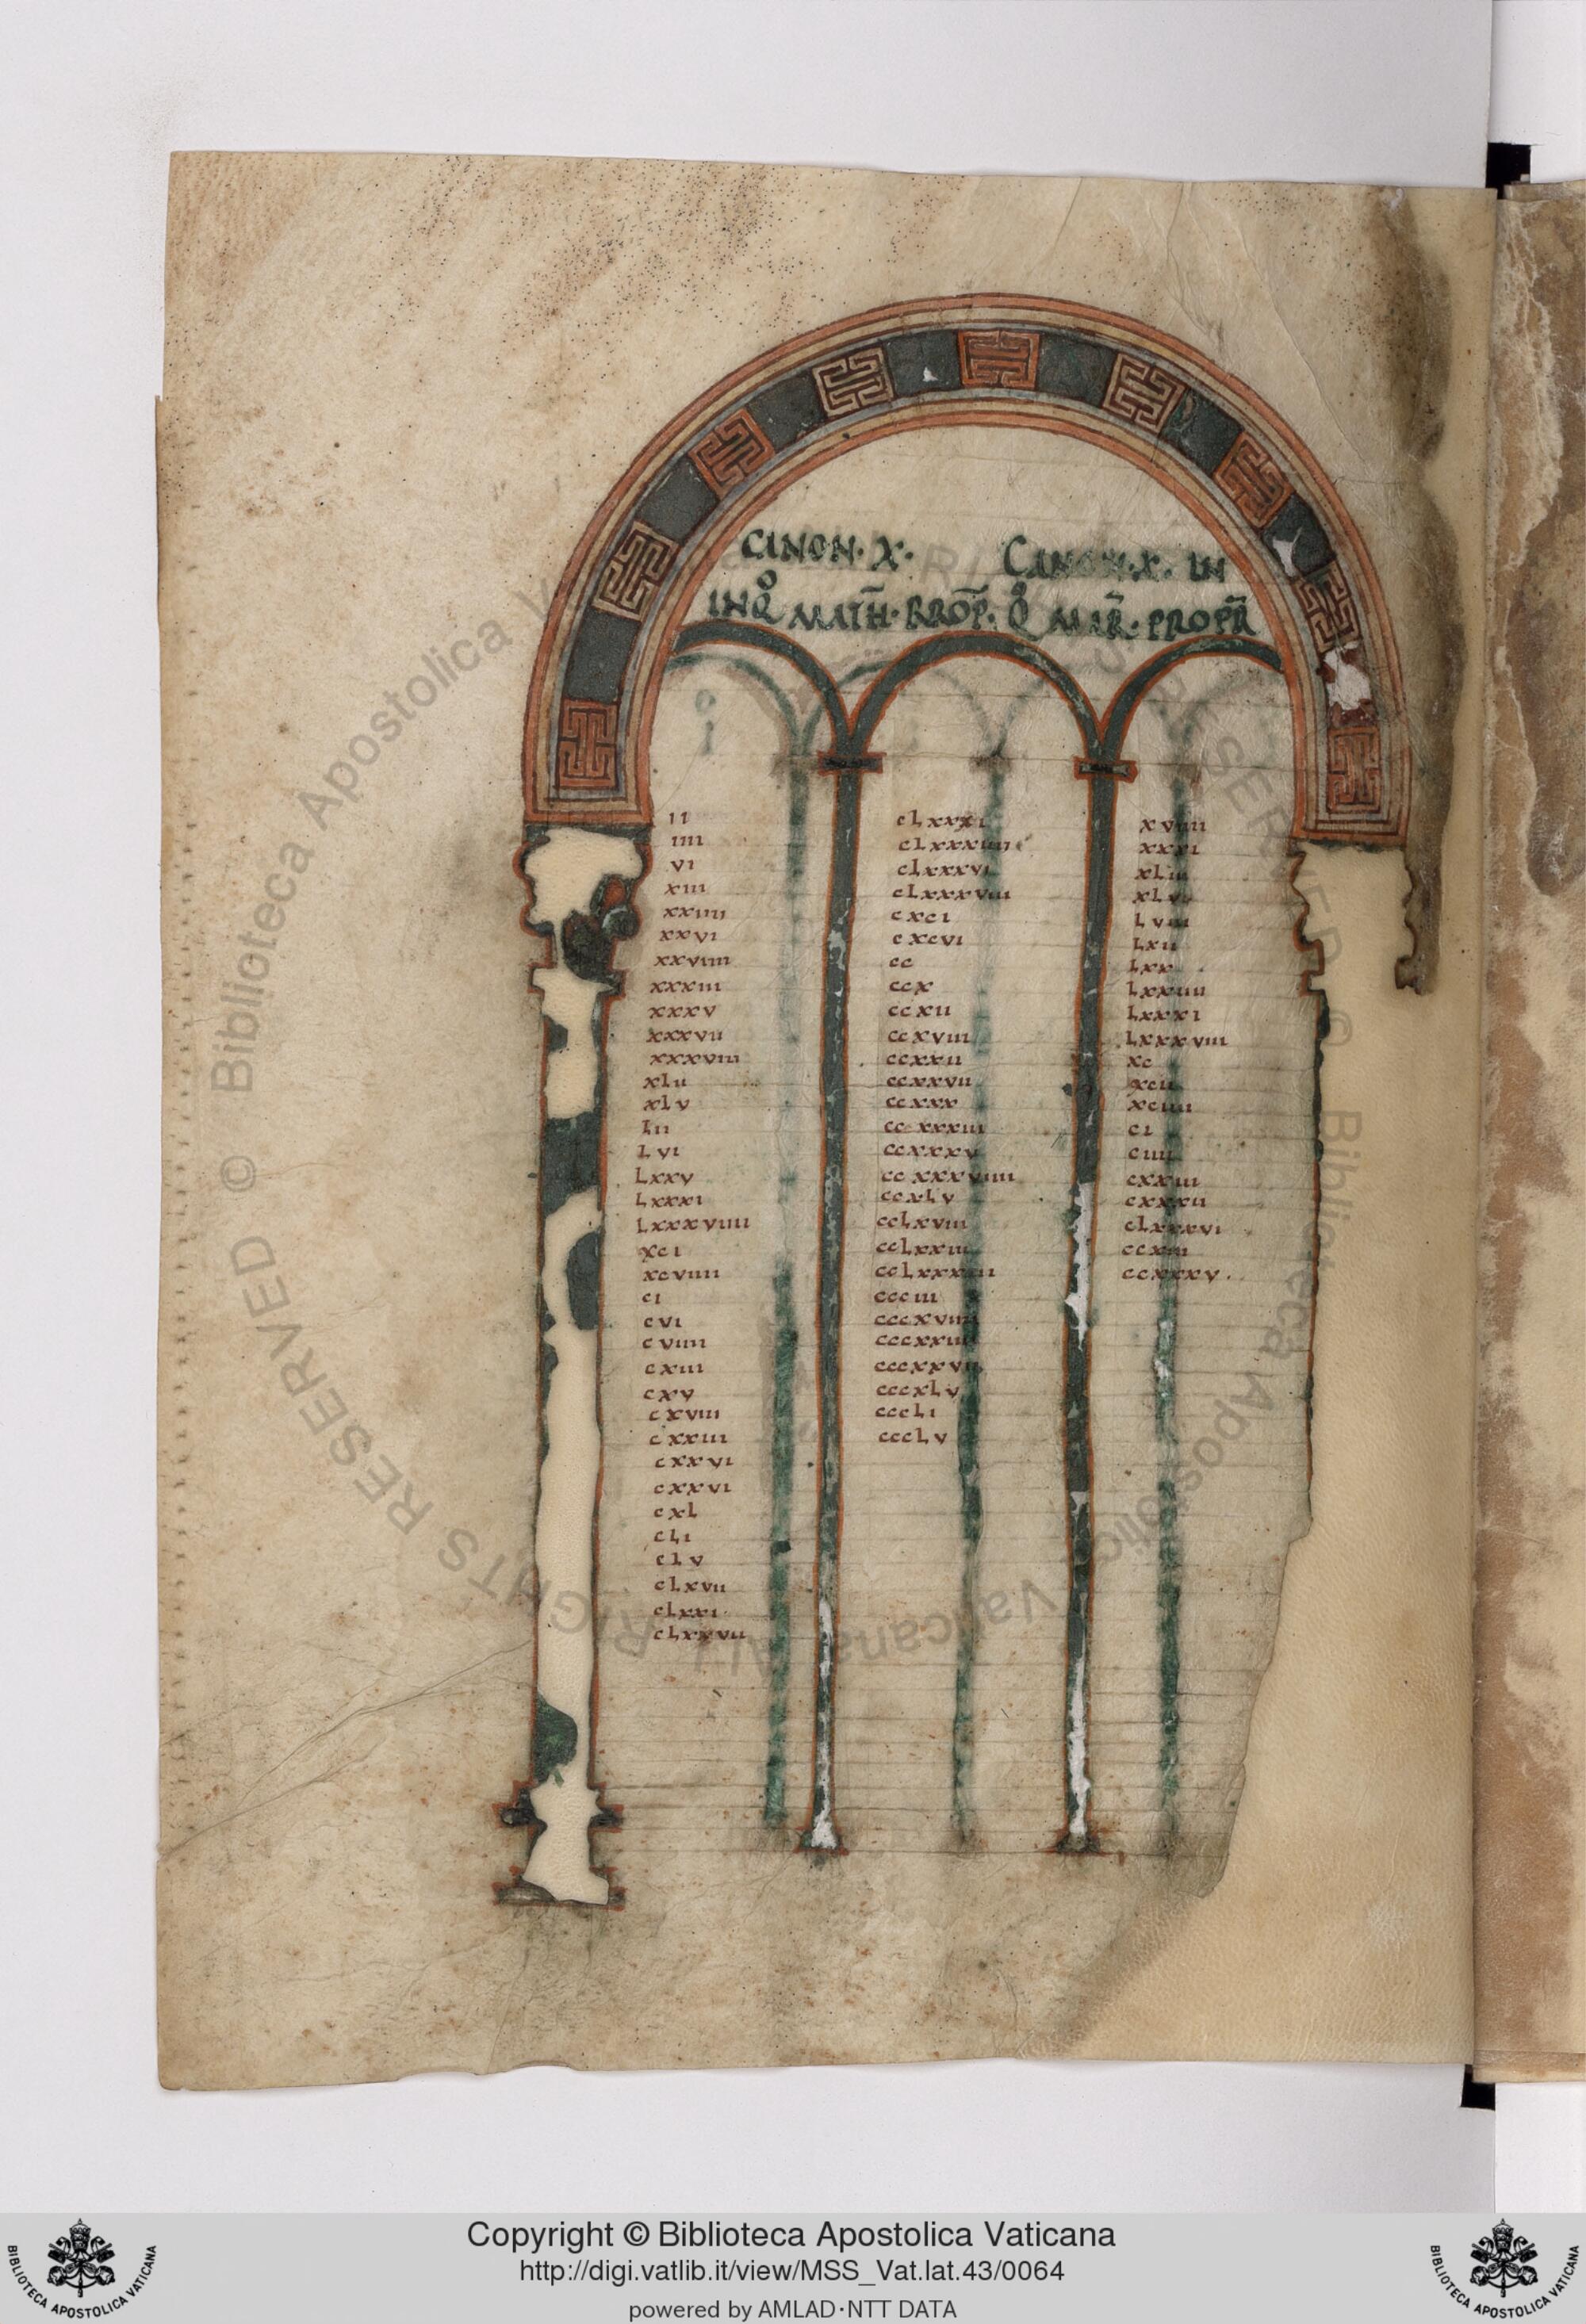 CANON·X· CANON·X· IN
IN Qº MATH·PROP· Qº MAR·PROPR
II
IIII
VI
XIII
XXIIII
XXVI
XXVIIII
XXXIII
XXXV
XXXVII
XXXVIIII
XLII
XLV
LII
LVI
LXXV
LXXXI
LXXXVIIII
XCI
XCVIIII
CI
CVI
CVIIII
CXIII
CXV
CXVIII
CXXIII
CXXVI
CXXVI
CXL
CLI
CLV
CLXVII
CLXXI
CLXXVII
CLXXXI
CLXXXIIII
CLXXXVI
CLXXXVIII
CXCI
CXCVI
CC
CCX
CCXII
CCXVIII
CCXXII
CCXXVII
CCXXX
CCXXXIII
CCXXXV
CCXXXVIIII
CCXLV
CCLXVIII
CCLXXIII
CCCIII
CCCXXIII
CCCXLV
CCCLI
CCCLV
XVIIII
XXXI
XLIII
LVIII
LXII
LXX
LXXIIII
LXXXI
LXXXVIII
XC
XCII
XCIIII
CI
CIIII
CXXIII
CXXXII
CLXXXVI
CCXIII
CCXXXV·
© Biblioteca Apostolica Vaticana ALL RIGHTS RESERVED
Copyright © Biblioteca Apostolica Vaticana
http://digi.vatlib.it/view/MSS_Vat.lat.43/0064
powered by AMLAD·NTT DATA
BIBLIOTECA APOSTOLICA VATICANA
BIBLIOTECA APOSTOLICA VATICANA